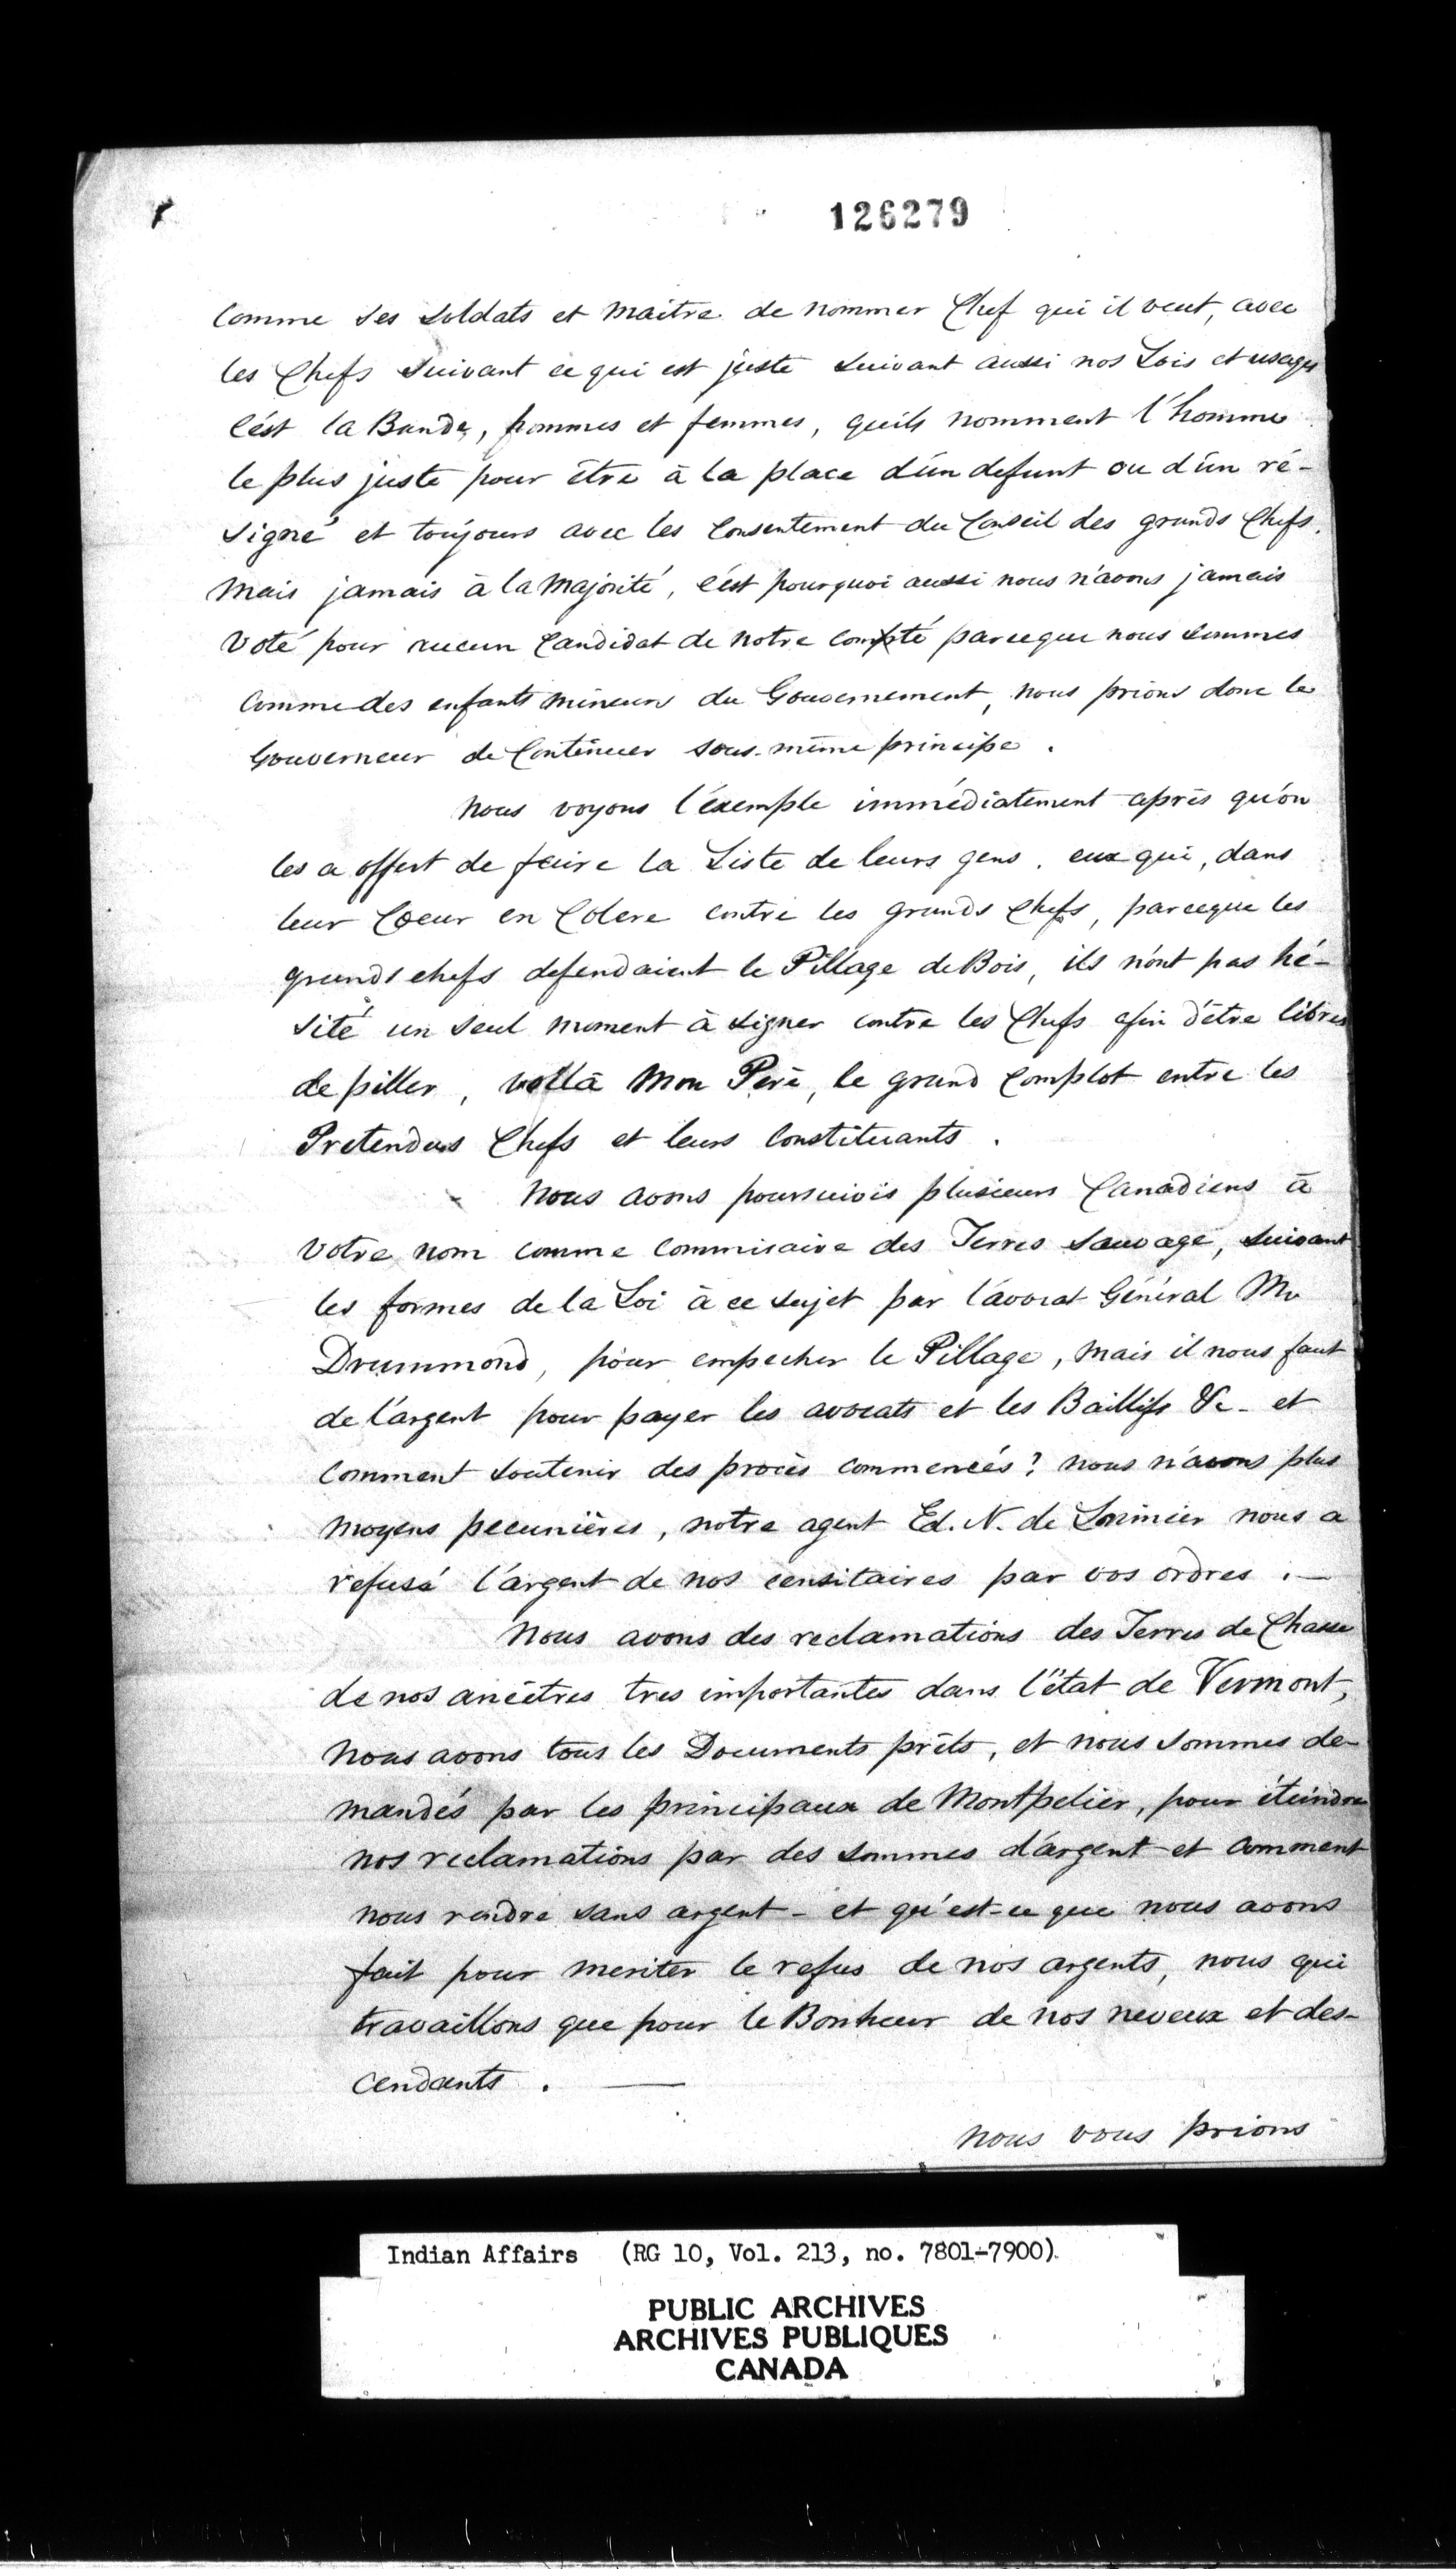 126279
Comme ses soldats et maitre de nommer Chef qui il veut, avec
les Chefs suivant ce qui est juste suivant aussi nos Lois et usages
C'ést la Bande, hommes et femmes, qu'ils nomment l'homme
le plus juste pour être à la place d'ún defunt ou d'ún ré-
signé et toujours avec les Consentement du Conseil des grands Chefs.
Mais jamais à la Majorité, c'ést pourquoi aussi nous n'avons jamais
voté pour aucun Candidat de notre compté parceque nous sommes
Comme des enfants mineurs du Gouvernement, nous prions donc le
Gouverneur de Continuer sous-même principe.
Nous voyons l'éxemple immédiatement après qu'on
les a offert de faire la Liste de leurs gens. eux qui, dans
leur Coeur en Colere contre les grands chefs, parceque les
grands chefs defendaient le Pillage de Bois, ils n'ónt pas hé-
sité un seul moment à signer contre les Chefs afin d'être libres
de piller, voila Mon Perè, le grand Complot entre les
Pretendus Chefs et leurs Constituants.
Nous avons poursuivis plusieurs Canadiens à
votre nom comme Commisaire des Terres Sauvage, suivant
les formes de la Loi à ce sujet par l'ávocat Général Mr
Drummond, pour empecher le Pillage, mais il nous faut
de l'argent pour payer les avocats et les Baillifs &c- et
Comment soutenir des procès commencés? nous n'ávons plus
moyens pecunières, notre agent Ed. N. de Lorimier nous a
refusé l'argent de nos censitaires par vos ordres.—
Nous avons des reclamations des Terres de Chasse
de nos ancêtres tres importantes dans l'état de Vermont,
Nous avons tous les Documents prêts, et nous sommes de-
mandés par les principaux de Montpelier, pour éteindre
nos reclamations par des sommes d'árgent et Comment
nous rendre sans argent- et qu'est-ce que nous avons
fait pour meriter le refus de nos argents, nous qui
travaillons que pour le Bonheur de nos neveux et des-
cendants. —
Nous vous prions
Indian Affairs (RG 10, Vol. 213, no. 7801-7900)
PUBLIC ARCHIVES
ARCHIVES PUBLIQUES
CANADA